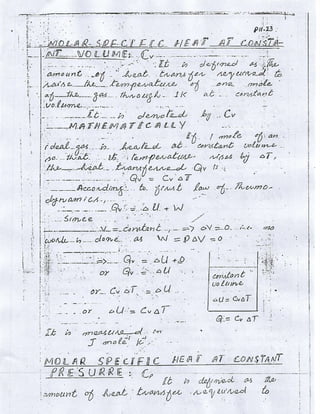 PH-23
MOLAR SPECIFIC HEAT AT CONSTA-
NT VOLUME: Cv
It is defined as the
amount of heat transfer required to
raise the temperature of one mole
of the gas through 1K at constant
volume.
It is denoted by Cv
MATHEMATICALLY
If 1 mole of an
ideal gas is heated at constant volume
so that its temperature rises by ΔT,
the heat transferred Qv is
Qv = Cv ΔT
According to first law of thermo-
dynamics,
Qv = ΔU + W
Since
V = constant, => ΔV = 0 i.e. no
work is done as W = PΔV = 0
=> Qv = ΔU + 0
or Qv = ΔU
or Cv ΔT = ΔU
or ΔU = Cv ΔT
constant
volume
ΔU = CvΔT
Q = Cv ΔT
It is measured in
J mole⁻¹ K⁻¹
MOLAR SPECIFIC HEAT AT CONSTANT
PRESURRE: Cp
It is defined as the
amount of heat transfer required to